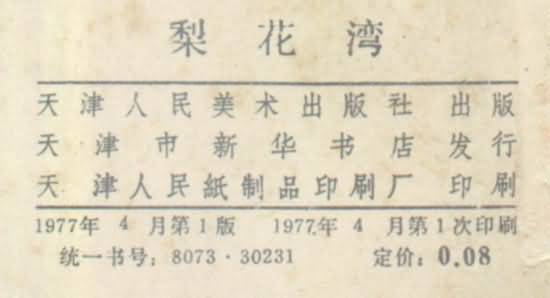 梨花湾
天津人民美术出版社 出版
天津市新华书店发行
天津人民紙制品印刷厂 印刷
1977年 4 月第1版 1977年 4 月第1次印刷
统一书号：8073·30231 定价：0.08